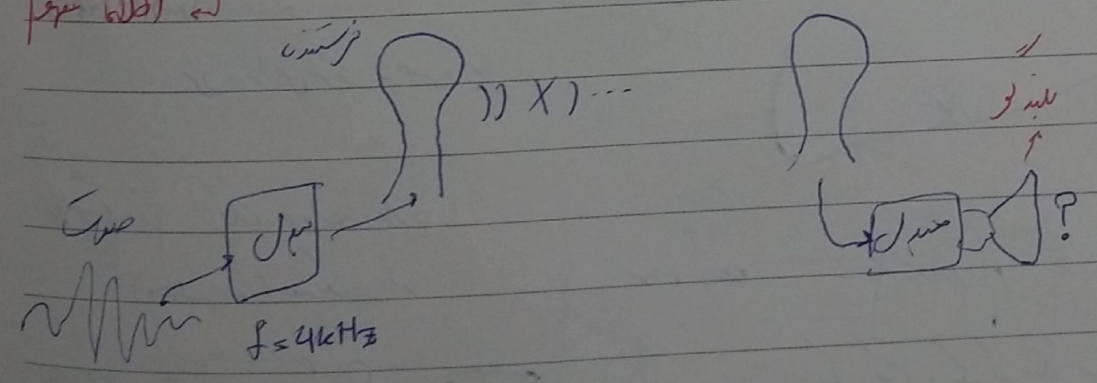 فرستنده
)) X ) ...
بلندگو
صوت
مبدل
مبدل
?
f = 4kHz